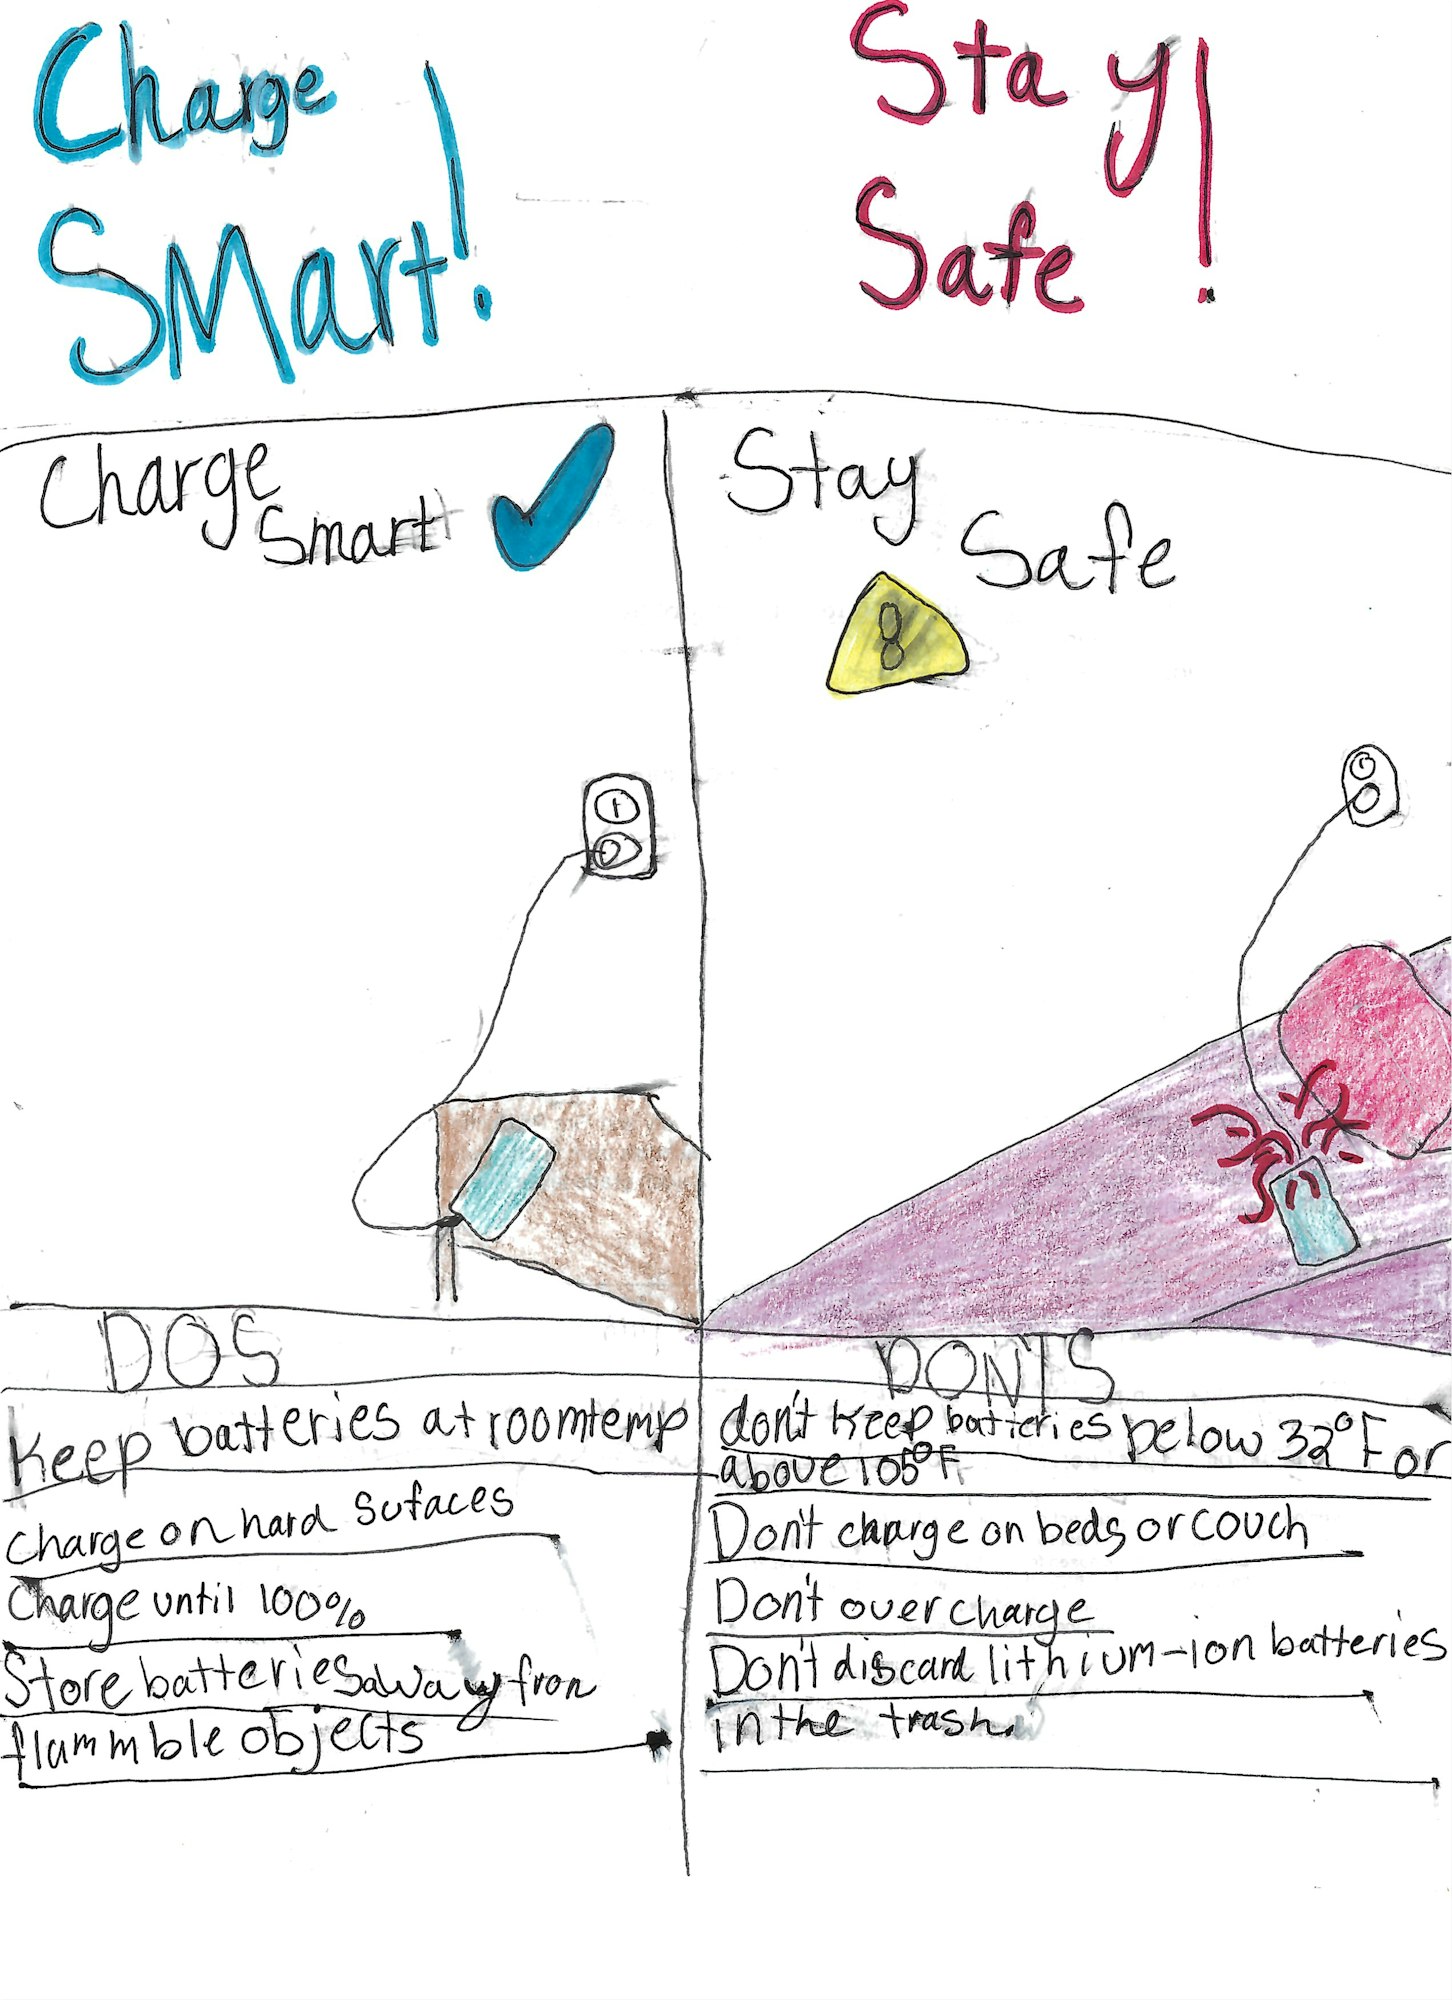 Charge
Smart!
Stay!
Safe
Charge
Smart
Stay
Safe
DOS
Keep batteries at roomtemp
Charge on hard sufaces
Charge until 100%
Store batteries away from
flammble objects
DON'TS
don't keep batteries below 32°F or
above 105°F.
Don't charge on beds or couch
Don't over charge
Don't discard lithium-ion batteries
in the trash.